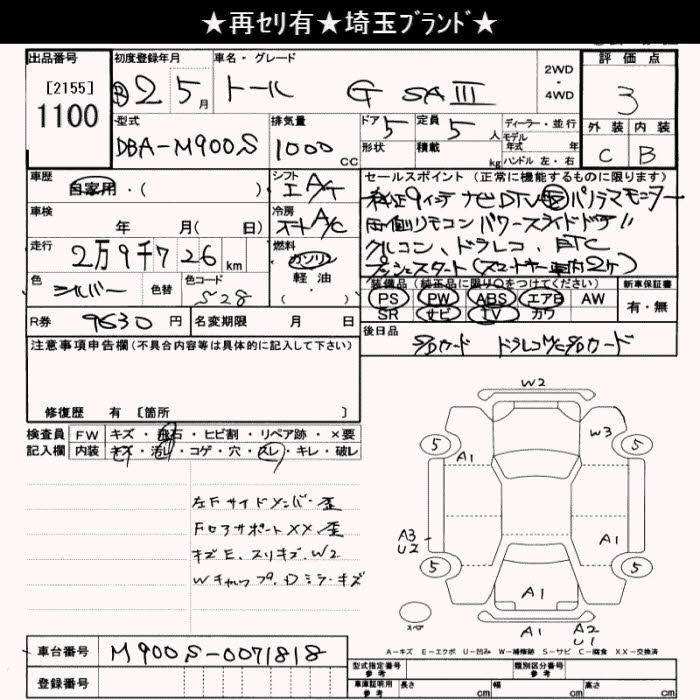 ★再セリ有★埼玉ブランド★
出品番号 初度登録年月 車名・グレード 2WD・4WD 評価点
[2155]
1100
2 5月 トール G SAⅢ 3
型式 排気量 ドア 定員 ディーラー・並行 外装 内装
DBA-M900S 1000cc 5 5人 モデル年式 年 C B
形状 積載 kg ハンドル 左・右
車歴 シフト セールスポイント(正常に機能するものに限ります)
自家用・( ) I A/T 純正9インチ ナビDTV パノラマモニター
車検 冷房 両側リモコン パワースライドドア
年 月( 日) オートA/C クルコン、ドラレコ、ETC
走行 燃料 プッシュスタート(スマートキー車内2ケ)
2万9千726km ガソリン
軽油
( )
色 色替 色コード 装備品(純正品に限り○をつけてください) 新車保証書
シルバー S28 PS PW ABS エアB AW 有・無
SR ナビ TV カワ
R券 9630円 名変期限 月 日 後日品
SDカード ドラレコ用SDカード
注意事項申告欄(不具合内容等は具体的に記入して下さい)
修復歴 有 [箇所 ]
検査員 FW キズ・飛石・ヒビ割・リペア跡・×要
記入欄 内装 キズ・汚レ・コゲ・穴・スレ・キレ・破レ
左Fサイドメンバー歪
Fロアサポート XX、歪
キズE、スリキズ、W2
Wキャップ、Dミラーキズ
W2
5 W3 5
A1
A3
U2 A1
5 5
A1
スペア A1 A2
U1
A-キズ E-エクボ U-凹み W-補修跡 S-サビ C-腐食 XX-交換済
車台番号 M900S-0071818
型式指定番号 参考 類別区分番号 参考
登録番号 車庫証明用 参考 長さ cm 幅 cm 高さ cm